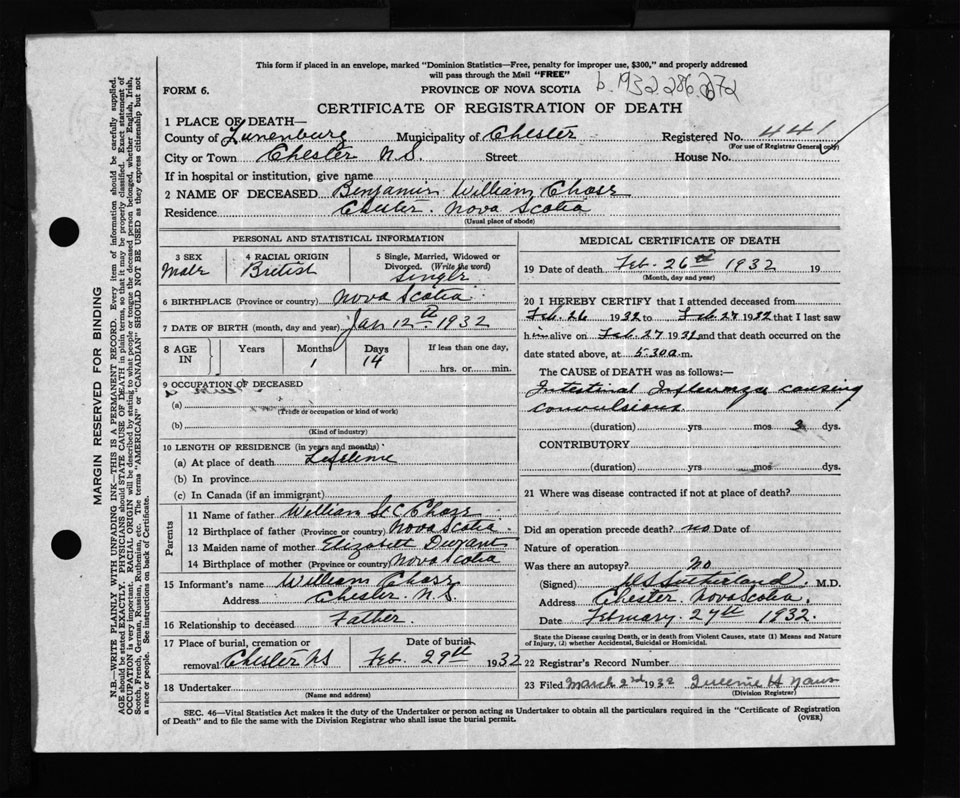 This form if placed in an envelope, marked "Dominion Statistics—Free, penalty for improper use, $300," and properly addressed
will pass through the Mail "FREE"
b. 1932 286
FORM 6.
PROVINCE OF NOVA SCOTIA
CERTIFICATE OF REGISTRATION OF DEATH
1 PLACE OF DEATH—
County of Lunenburg Municipality of Chester Registered No. 441
(For use of Registrar General only)
City or Town Chester N.S. Street House No.
If in hospital or institution, give name
2 NAME OF DECEASED Benjamin William Chase
Residence Chester. Nova Scotia
(Usual place of abode)
PERSONAL AND STATISTICAL INFORMATION
3 SEX Male
4 RACIAL ORIGIN British
5 Single, Married, Widowed or
Divorced. (Write the word)
Single
6 BIRTHPLACE (Province or country) Nova Scotia
7 DATE OF BIRTH (month, day and year) Jan 12th 1932
8 AGE IN Years Months 1 Days 14 If less than one day,
hrs. or min.
9 OCCUPATION OF DECEASED
(a)
(Trade or occupation or kind of work)
(b)
(Kind of industry)
10 LENGTH OF RESIDENCE (in years and months)
(a) At place of death Lifetime
(b) In province
(c) In Canada (if an immigrant)
Parents
11 Name of father William St C Chase
12 Birthplace of father (Province or country) Nova Scotia
13 Maiden name of mother Elizabeth
14 Birthplace of mother (Province or country) Nova Scotia
15 Informant's name William Chase
Address Chester N.S.
16 Relationship to deceased Father
17 Place of burial, cremation or Date of burial
removal Chester NS Feb. 29th 1932
18 Undertaker
(Name and address)
MEDICAL CERTIFICATE OF DEATH
19 Date of death Feb. 26th 1932 19
(Month, day and year)
20 I HEREBY CERTIFY that I attended deceased from
Feb. 26 1932 to Feb. 27 1932 that I last saw
him alive on Feb. 27 1932 and that death occurred on the
date stated above, at 5.30 a.m.
The CAUSE of DEATH was as follows:—
Intestinal Influenza causing
convulsions
(duration) yrs mos dys.
CONTRIBUTORY
(duration) yrs mos dys.
21 Where was disease contracted if not at place of death?
Did an operation precede death? no Date of
Nature of operation
Was there an autopsy? No
(Signed) Sutherland M.D.
Address Chester Nova Scotia.
Date February 27th 1932.
State the Disease causing Death, or in death from Violent Causes, state (1) Means and Nature
of Injury, (2) whether Accidental, Suicidal or Homicidal.
22 Registrar's Record Number
23 Filed March 2nd 1932
(Division Registrar)
SEC. 46—Vital Statistics Act makes it the duty of the Undertaker or person acting as Undertaker to obtain all the particulars required in the "Certificate of Registration
of Death" and to file the same with the Division Registrar who shall issue the burial permit.
(OVER)
MARGIN RESERVED FOR BINDING
N.B.—WRITE PLAINLY WITH UNFADING INK—THIS IS A PERMANENT RECORD. Every item of information should be carefully supplied.
AGE should be stated EXACTLY. PHYSICIANS should STATE CAUSE OF DEATH in plain terms, so that it may be properly classified. Exact statement of
OCCUPATION is very important. RACIAL ORIGIN will be described by stating to what people or tongue the deceased person belonged, whether English, Irish,
Scotch, French, German, Russian, Ruthenian, etc. The terms "AMERICAN" or "CANADIAN" SHOULD NOT BE USED as they express citizenship but not
a race or people. See instructions on back of Certificate.